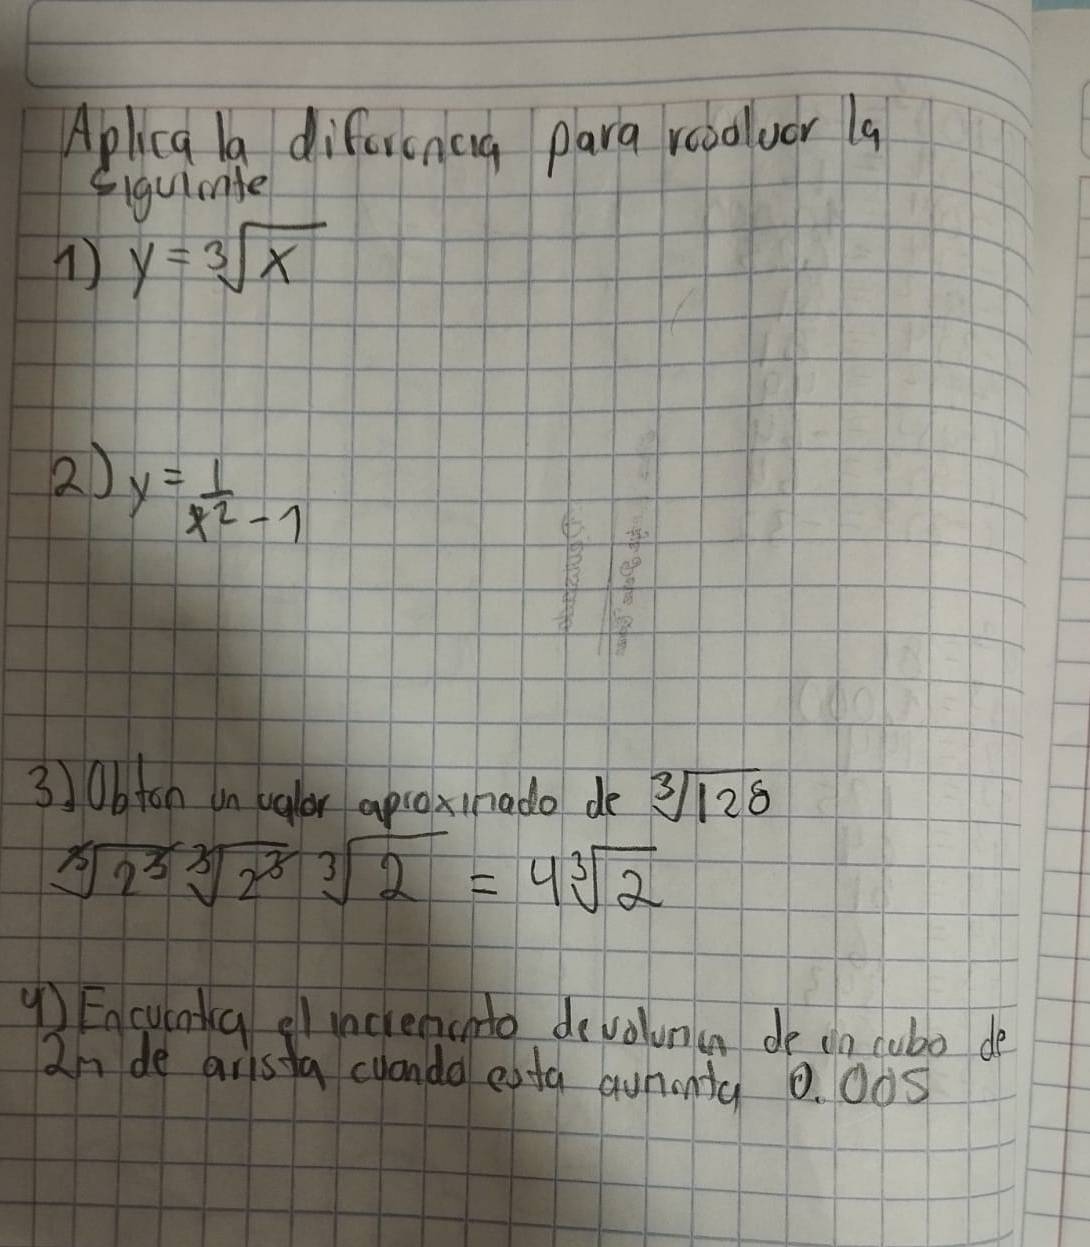 Aplica la diferencia para resolver la
siguiente
1) y = ∛x
2) y = 1/(x² - 1)
3) Obten un valor aproximado de ∛128
∛2³ ∛2³ ∛2 = 4∛2
4) Encuentra el incremento de volumen de un cubo de
2m de arista cuando esta aumenta 0.005